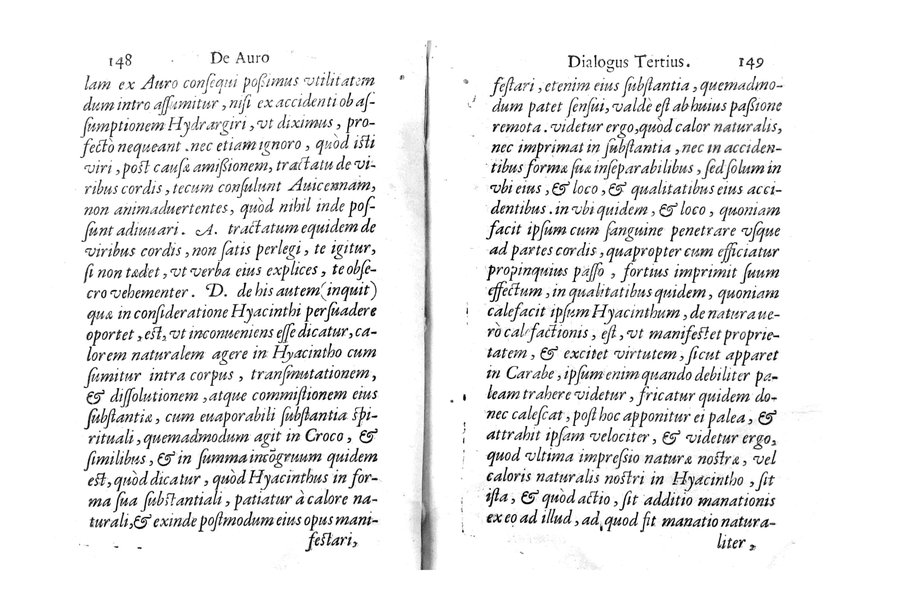 148 De Auro
lam ex Auro consequi possimus vtilitatem
dum intro assumitur, nisi ex accidenti ob as-
sumptionem Hydrargiri, vt diximus, pro-
fectò nequeant. nec etiam ignoro, quòd isti
viri, post causæ amissionem, tractatu de vi-
ribus cordis, tecum consulunt Auicennam,
non animaduertentes, quòd nihil inde pos-
sunt adiuuari. A. tractatum equidem de
viribus cordis, non satis perlegi, te igitur,
si non tædet, vt verba eius explices, te obse-
cro vehementer. D. de his autem (inquit)
quæ in consideratione Hyacinthi persuadere
oportet, est, vt inconueniens esse dicatur, ca-
lorem naturalem agere in Hyacintho cum
sumitur intra corpus, transmutationem,
& dissolutionem, atque commistionem eius
substantiæ, cum euaporabili substantia spi-
rituali, quemadmodum agit in Croco, &
similibus, & in summa incõgruum quidem
est, quòd dicatur, quòd Hyacinthus in for-
ma sua substantiali, patiatur à calore na-
turali, & exinde postmodum eius opus mani-
festari,
Dialogus Tertius. 149
festari, etenim eius substantia, quemadmo-
dum patet sensui, valdè est ab huius passione
remota. videtur ergo, quòd calor naturalis,
nec imprimat in substantia, nec in acciden-
tibus formæ suæ inseparabilibus, sed solum in
vbi eius, & loco, & qualitatibus eius acci-
dentibus. in vbi quidem, & loco, quoniam
facit ipsum cum sanguine penetrare vsque
ad partes cordis, quapropter cum efficiatur
propinquius passo, fortius imprimit suum
effectum, in qualitatibus quidem, quoniam
calefacit ipsum Hyacinthum, de natura ue-
rò calefactionis, est, vt manifestet proprie-
tatem, & excitet virtutem, sicut apparet
in Carabe, ipsum enim quando debiliter pa-
leam trahere videtur, fricatur quidem do-
nec calescat, post hoc apponitur ei palea, &
attrahit ipsam velociter, & videtur ergo,
quod vltima impressio naturæ nostræ, vel
caloris naturalis nostri in Hyacintho, sit
ista, & quòd actio, sit additio manationis
ex eo ad illud, ad quod fit manatio natura-
liter,